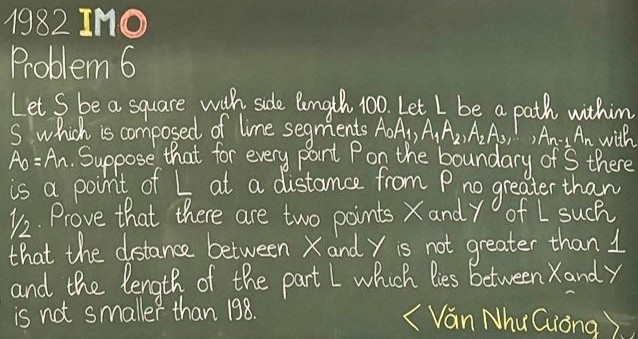 1982 IMO
Problem 6
Let S be a square with side length 100. Let L be a path within
S which is composed of line segments A₀A₁, A₁A₂, A₂A₃, ..., Aₙ₋₁Aₙ with
A₀ = Aₙ. Suppose that for every point P on the boundary of S there
is a point of L at a distance from P no greater than
1/2. Prove that there are two points X and Y of L such
that the distance between X and Y is not greater than 1
and the length of the part L which lies between X and Y
is not smaller than 198.
<Văn Như Cương>